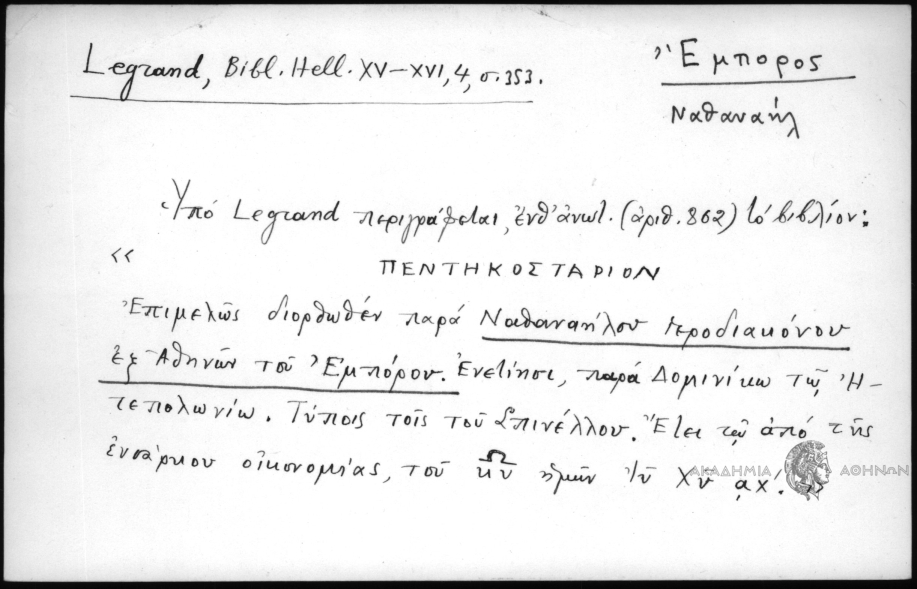 Legrand, Bibl. Hell. XV–XVI, 4, σ. 353.
Ἔμπορος
Ναθαναήλ
Ὑπό Legrand περιγράφεται, ἔνθ' ἀνωτ. (ἀριθ. 862) τό βιβλίον:
«
ΠΕΝΤΗΚΟΣΤΑΡΙΟΝ
Ἐπιμελῶς διορθωθέν παρά Ναθαναήλου ἱεροδιακόνου
ἐξ Ἀθηνῶν τοῦ Ἐμπόρου. Ἐνετίησι, παρά Δομινίκω τῷ Ἠ-
τεπολωνίω. Τύποις τοῖς τοῦ Σπινέλλου. Ἔτει τῷ ἀπό τῆς
ἐνσάρκου οἰκονομίας, τοῦ κῦ ἡμῶν Ἰῦ Χῦ ᾳχ'. »
ΑΚΑΔΗΜΙΑ ΑΘΗΝΩΝ